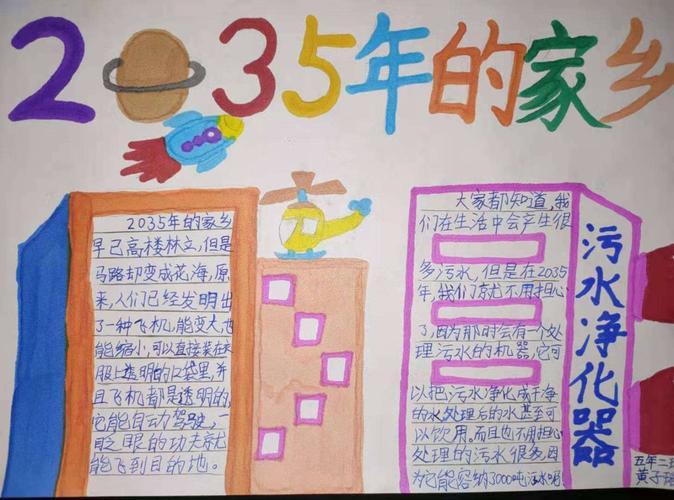 2035年的家乡
2035年的家乡
早已高楼林立,但是
马路却变成花海,原
来,人们已经发明出
了一种飞机,能变大也
能缩小,可以直接装在衣
服上透明的口袋里,并
且飞机都是透明的,
它能自动驾驶,一
眨眼的功夫就
能飞到目的地。
大家都知道,我
们在生活中会产生很
多污水,但是在2035
年,我们就不用担心
了,因为那时会有一个处
理污水的机器,它可
以把污水净化成干净
的水处理后的水甚至可
以饮用。而且也不用担心
处理的污水很多,因
为它能容纳3000吨污水哦
污水净化器
五年二班
黄子